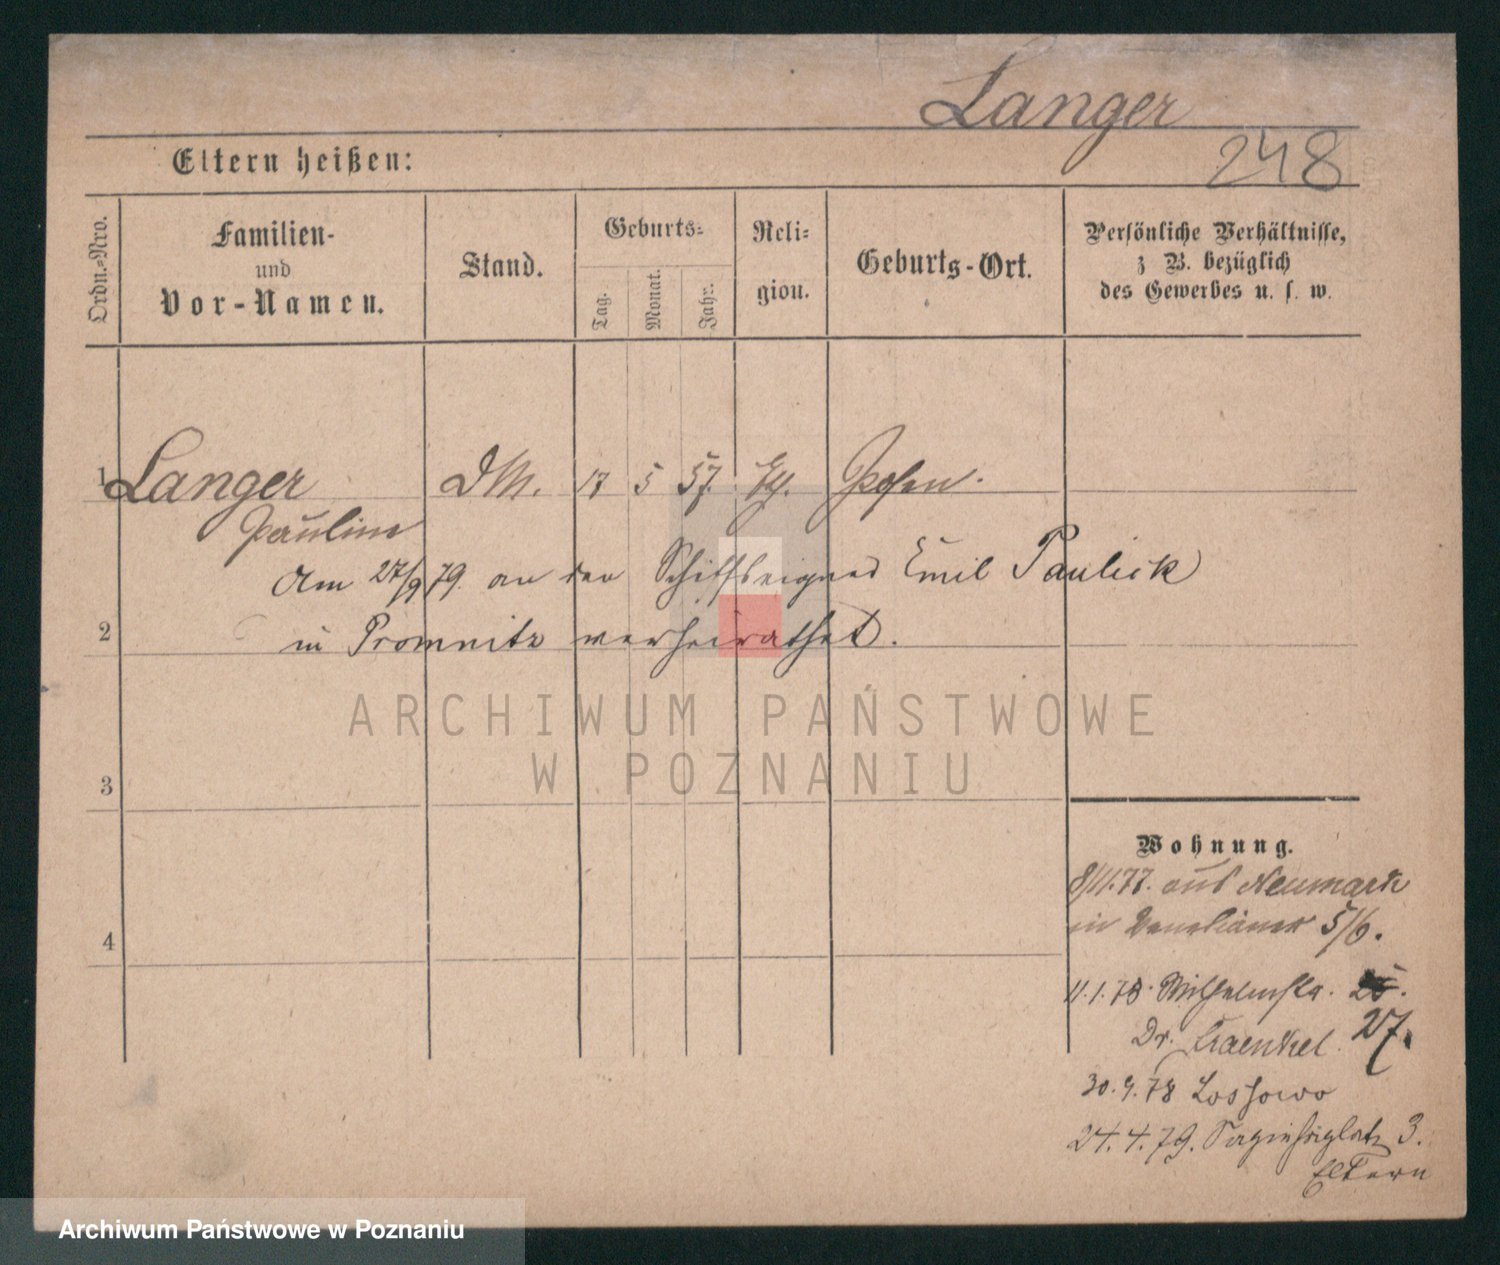 Langer
248
Eltern heißen:
Ordn.-Nro.
Familien-
und
Vor-Namen.
Stand.
Geburts-
Tag.
Monat.
Jahr.
Reli-
gion.
Geburts-Ort.
Persönliche Verhältnisse,
z B. bezüglich
des Gewerbes u. s. w.
1 Langer DM. 17 5 57. Posen.
Pauline
Am 27/9 79. an den Schiffseigner Emil Paulick
2 in Promnitz verheirathet.
3
4
Wohnung.
8/11.77. aus Neumark
in 5/6.
11.1.78. Wilhelmstr. 25.
27.
Dr.
30.9.78 Lossowo
24.4.79. Sapiehaplatz 3.
Eltern
ARCHIWUM PAŃSTWOWE
W POZNANIU
Archiwum Państwowe w Poznaniu